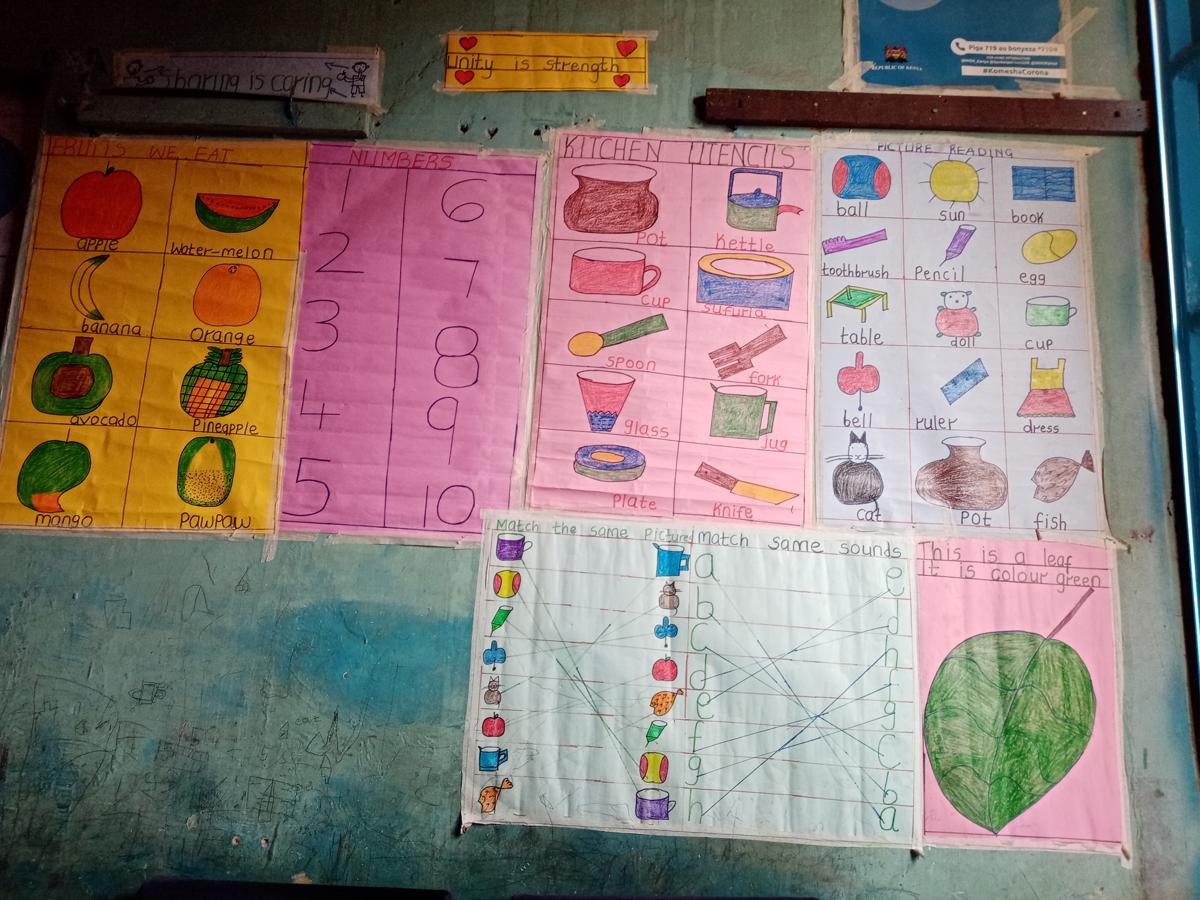 Sharing is caring
Unity is strength
REPUBLIC OF KENYA
Piga 719 au bonyeza *719#
#KomeshaCorona
FRUITS WE EAT
apple
water-melon
banana
orange
avocado
Pineapple
mango
PAWPAW
NUMBERS
1 6
2 7
3 8
4 9
5 10
KITCHEN UTENCILS
POt
Kettle
cup
sufuria
spoon
fork
glass
jug
Plate
Knife
PICTURE READING
ball sun book
toothbrush Pencil egg
table doll cup
bell ruler dress
cat POt fish
Match the same Pictures
Match same sounds
a e
b d
C h
d f
e g
f C
g b
h a
This is a leaf
It is colour green